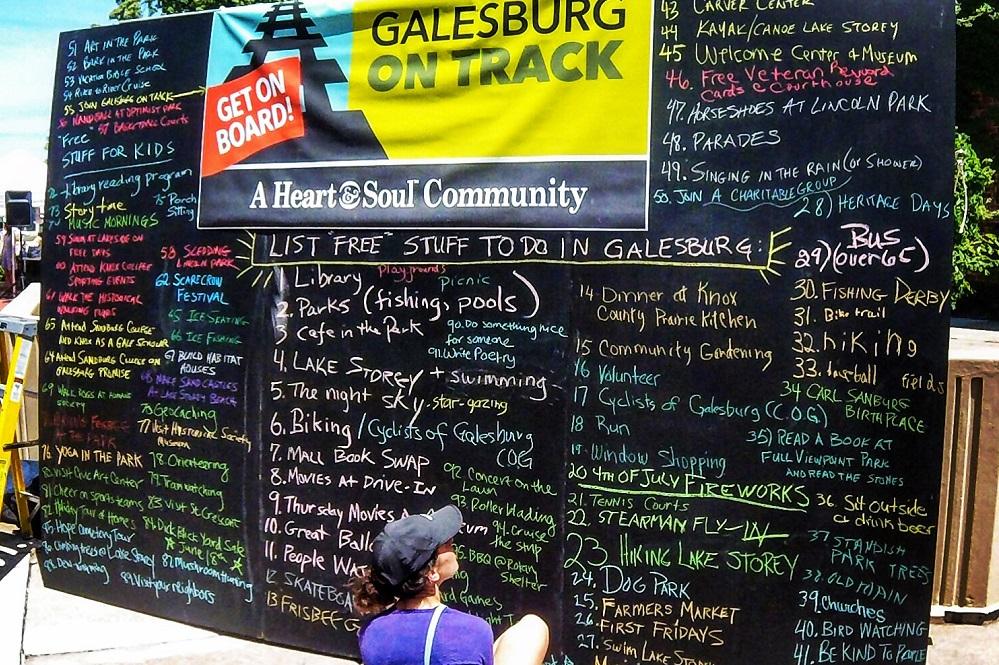 GALESBURG
ON TRACK
GET ON
BOARD!
A Heart & Soul Community
LIST "FREE" STUFF TO DO IN GALESBURG:
51 ART IN THE PARK
52 BARK IN THE PARK
53 VACATION BIBLE SCHOOL
54 RIVER TO RIVER CRUISE
55. JOIN GALESBURG ON TRACK
56 HANDBALL AT OPTIMIST PARK
57 BASKETBALL COURTS
"Free"
STUFF FOR KIDS
72 Library reading program
73 Story time
74 MUSIC MORNINGS
75 Porch
Sitting
59 SWIM AT LAKESIDE ON
FREE DAYS
60 ATTEND KNOX COLLEGE
SPORTING EVENTS
61 WALK THE HISTORICAL
WALKING TOURS
58 SLEDDING
LINCOLN PARK
62 SCARECROW
FESTIVAL
65 ICE SKATING
66 ICE FISHING
65 ATTEND SANDBURG COLLEGE
AND KNOX AS A GALE SCHOLAR
64 ATTEND SANDBURG COLLEGE ON
GALESBURG PROMISE
67 BUILD HABITAT
HOUSES
68 MAKE SAND CASTLES
AT LAKE STOREY BEACH
69 WALK DOGS AT HUMANE
SOCIETY
75 Geocaching
THE PARK
77 Visit Historical Society
Museum
76 YOGA IN THE PARK
78. Orienteering
80. Visit Civic Art Center
79. Train watching
81 Cheer on sports teams
83 Visit St Crescent
82 Holiday Tour of Homes
84 Dick Block Yard Sale
June 18th
85 Hope Cemetery Tour
86 Climb trees @ Lake Storey
87 Mushroom hunting
99 Visit your neighbors
1. Library
playgrounds
picnic
2. Parks (fishing, pools)
3 Cafe in the Park
90. Do something nice
for someone
91. Write Poetry
4. LAKE STOREY + swimming
5. The night SKY - star-gazing
6. Biking / Cyclists of Galesburg
COG
7. MALL BOOK SWAP
8. MOVIES AT DRIVE-IN
92. Concert on the
Lawn
9. Thursday Movies
93. Roller blading
10. Great
94. Cruise
the Strip
11. People
BBQ @ Rotary
Shelter
12 SKATEBOA
rd Games
13 FRISBEE G
14. Dinner at Knox
County Prairie Kitchen
15 Community Gardening
16 Volunteer
17 Cyclists of Galesburg (C.O.G.)
18 Run
19. Window Shopping
20 4TH OF JULY FIREWORKS
21. TENNIS COURTS
22. STEARMAN FLY-IN
23 HIKING LAKE STOREY
24. DOG PARK
25. FARMERS MARKET
26. FIRST FRIDAYS
27. SWIM LAKE STOREY
43 CARVER CENTER
44 KAYAK/CANOE LAKE STOREY
45 Welcome Center & Museum
46. Free Veteran Reward
Cards @ Courthouse
47. HORSESHOES AT LINCOLN PARK
48. PARADES
49. SINGING IN THE RAIN (or SHOWER)
50. JOIN A CHARITABLE GROUP
28) HERITAGE DAYS
29) BUS
(over 65)
30. FISHING DERBY
31. Bike trail
32. hiKing
33. baseball fields
34 CARL SANBURG
BIRTHPLACE
35) READ A BOOK AT
FULL VIEWPOINT PARK
AND READ THE STONES
36. Sit outside
& drink beer
37 STANDISH
PARK TREES
38. OLD MAIN
39. Churches
40. BIRD WATCHING
41. BE KIND TO PEOPLE